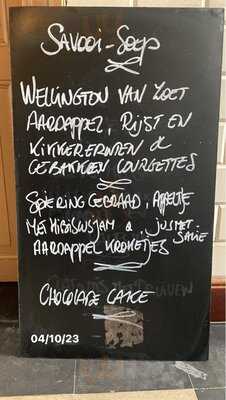 Savooi-Soep
Wellington van zoet
aardappel, rijst en
kikkererwten &
gebakken courgettes
Spieringgebraad, appeltje
met bigosjam &
jus met
salie
aardappel kroketjes
Chocolade cake
04/10/23